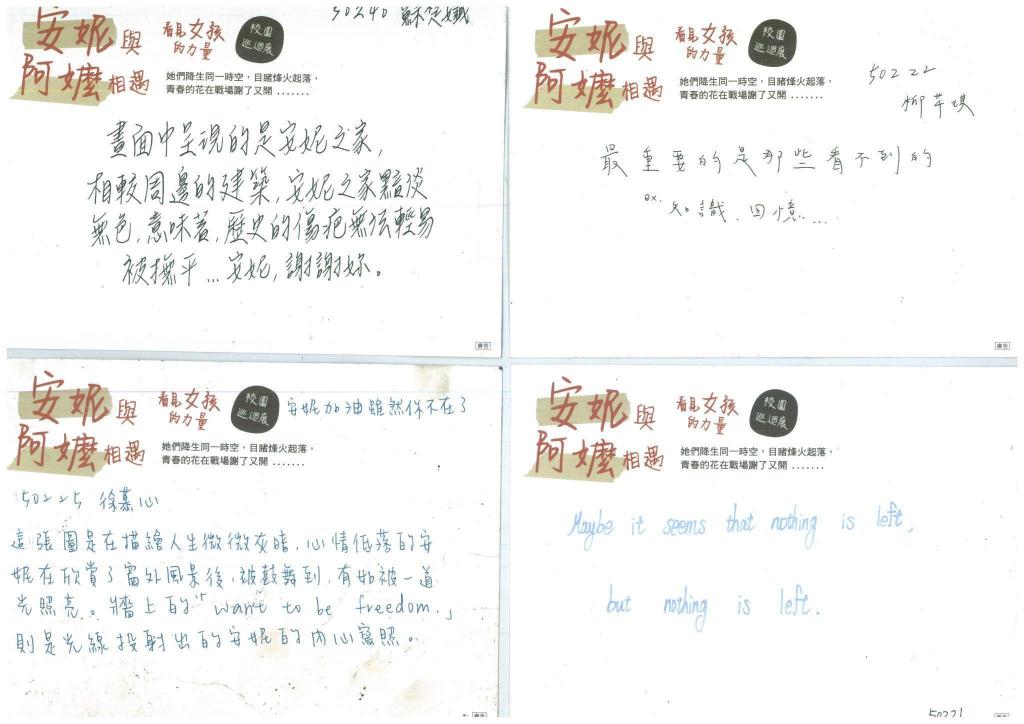 50240
安妮與
阿嬤相遇
看見女孩
的力量
校園
巡迴展
她們降生同一時空，目睹烽火起落，
青春的花在戰場謝了又開 .......
畫面中呈現的是安妮之家，
相較周邊的建築，安妮之家黯淡
無色，意味著，歷史的傷疤無法輕易
被撫平…安妮，謝謝妳。
廣告
安妮與
阿嬤相遇
看見女孩
的力量
校園
巡迴展
她們降生同一時空，目睹烽火起落，
青春的花在戰場謝了又開 .......
50222
柳芊琪
最重要的是那些看不到的
ex. 知識、回憶…
廣告
安妮與
阿嬤相遇
看見女孩
的力量
校園
巡迴展
安妮加油雖然你不在了
她們降生同一時空，目睹烽火起落，
青春的花在戰場謝了又開 .......
50225 徐慕心
這張圖是在描繪人生微微灰暗，心情低落的安
妮在欣賞了窗外風景後，被鼓舞到，有如被一道
光照亮。牆上的“want to be freedom.」
則是光線投射出的安妮的內心寫照。
廣告
安妮與
阿嬤相遇
看見女孩
的力量
校園
巡迴展
她們降生同一時空，目睹烽火起落，
青春的花在戰場謝了又開 .......
Maybe it seems that nothing is left,
but nothing is left.
50221
廣告